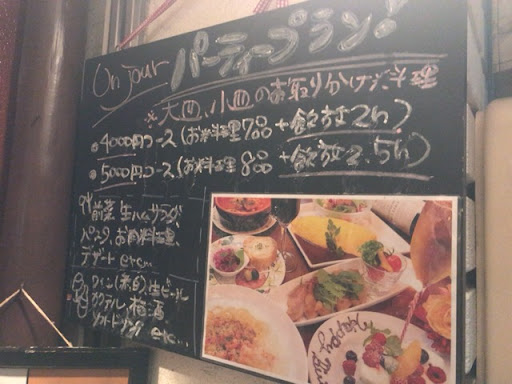 Un jour パーティープラン!
※大皿、小皿のお取りかけ、料理
●4000円コース(お料理7品+飲放2h)
●5000円コース(お料理8品+飲放2.5h)
前菜 生ハムサラダ
パスタ、お肉料理、
デザート etc...
ワイン(赤・白)生ビール
カクテル 梅酒
ソフトドリンク etc...
Happy